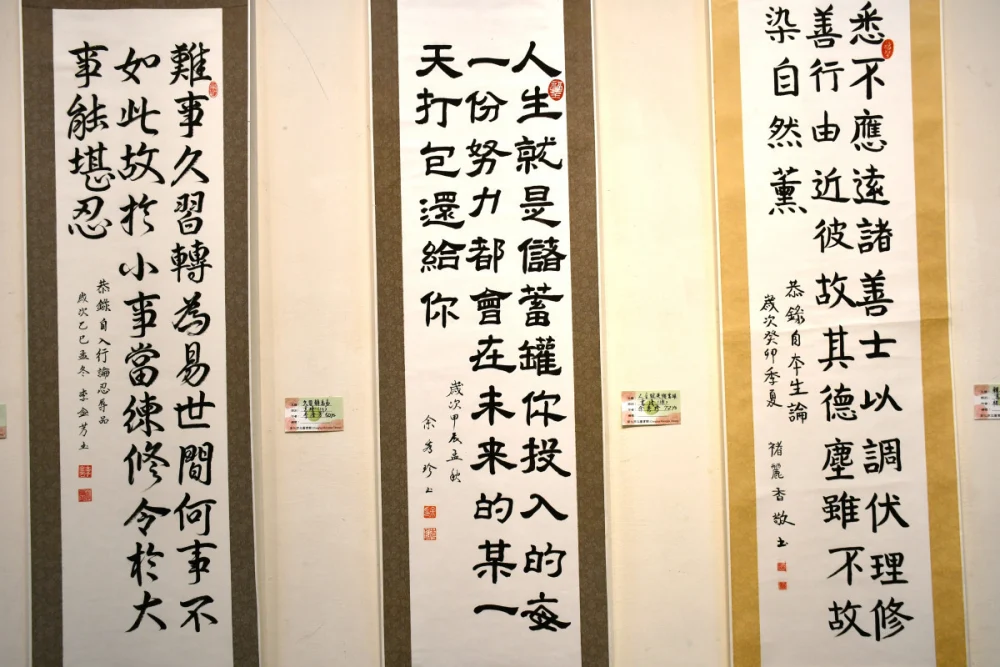 悉不應遠諸善士以調伏理修
善行由近彼故其德塵雖不故
染自然薰
恭錄自本生論
歲次癸卯季夏
褚麗香敬書
人生就是儲蓄罐你投入的每
一份努力都會在未來的某一
天打包還給你
歲次甲辰孟秋
余秀珍上
難事久習轉為易世間何事不
如此故於小事當練修令於大
事能堪忍
恭錄自入行論忍辱品
歲次乙巳孟冬